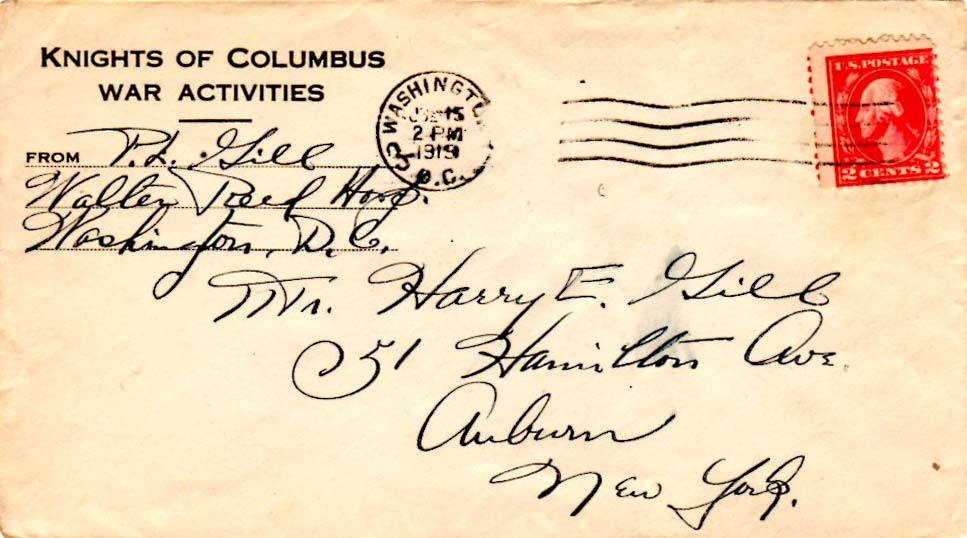 KNIGHTS OF COLUMBUS
WAR ACTIVITIES
FROM P.L. Gill
Walter Reed Hosp.
Washington, D.C.
WASHINGTON
15
2 PM
1919
D.C.
U.S. POSTAGE
2 CENTS 2
Mr. Harry E. Gill
51 Hamilton Ave.
Auburn
New York.